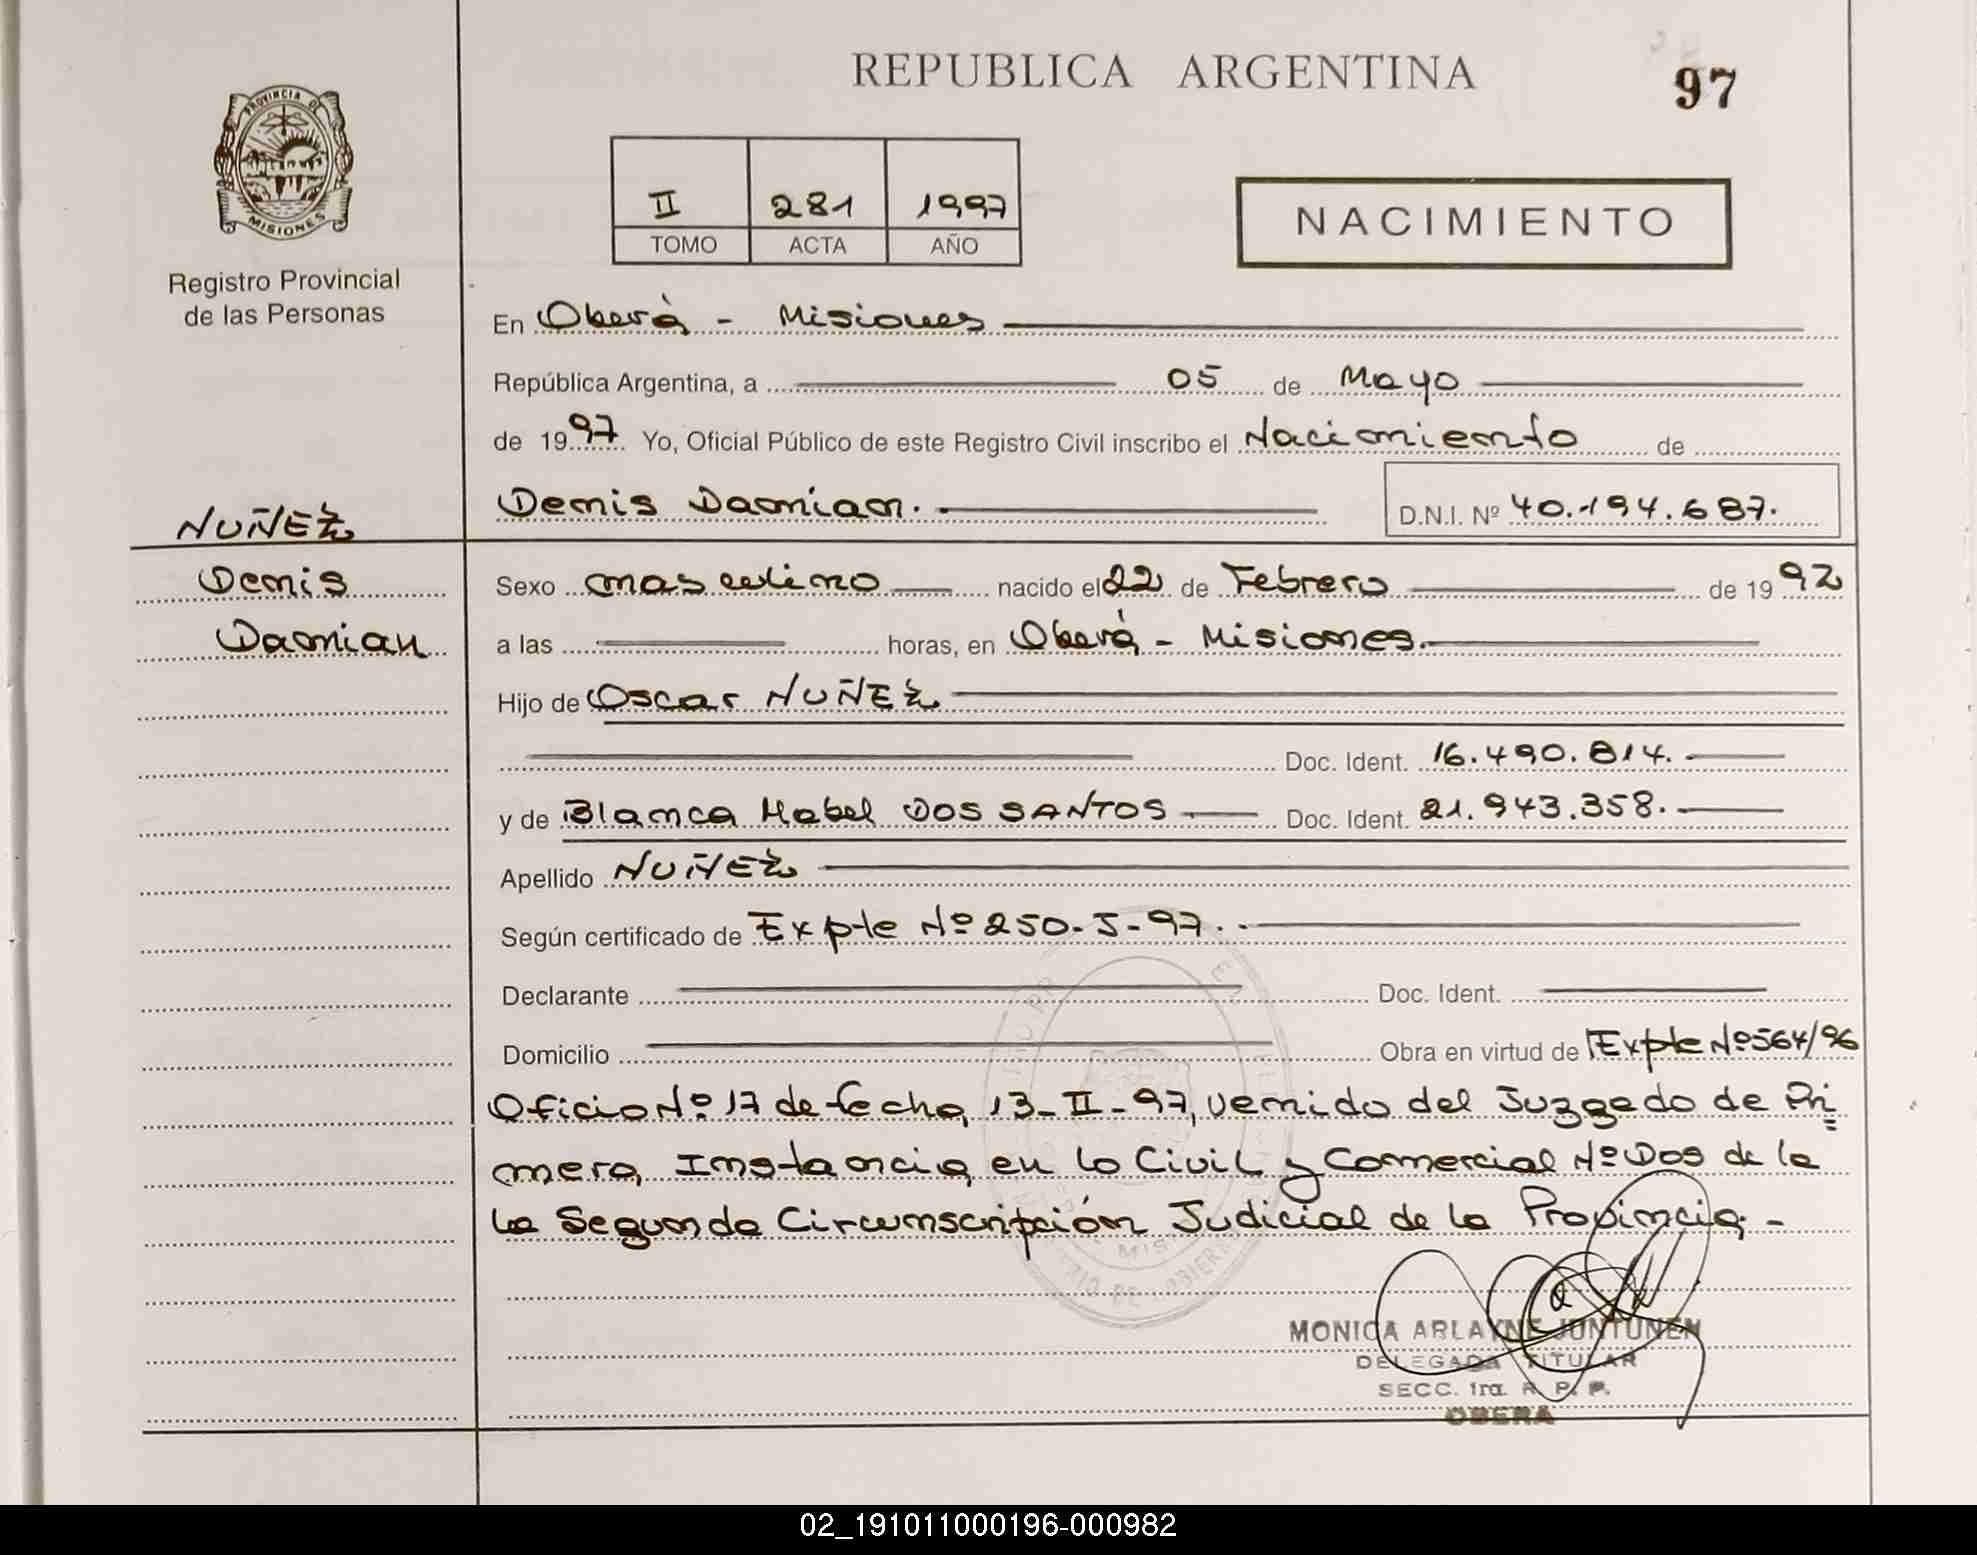 REPUBLICA ARGENTINA
97
PROVINCIA DE
MISIONES
Registro Provincial
de las Personas
II 281 1997
TOMO ACTA AÑO
NACIMIENTO
En Oberá - Misiones
República Argentina, a 05 de Mayo
de 1997 Yo, Oficial Público de este Registro Civil inscribo el Nacimiento de
NUÑEZ
Denis Damian.
D.N.I. Nº 40.194.687.
Denis
Damian
Sexo masculino nacido el 22 de Febrero de 1992
a las horas, en Oberá - Misiones.
Hijo de Oscar NUÑEZ
Doc. Ident. 16.490.814.
y de Blanca Mabel DOS SANTOS Doc. Ident. 21.943.358.
Apellido NUÑEZ
Según certificado de Expte Nº 250-J-97.-
Declarante Doc. Ident.
Domicilio Obra en virtud de Expte Nº 564/96
Oficio Nº 17 de fecha, 13-II-97, venido del Juzgado de Pri=
mera Instancia en lo Civil y Comercial Nº Dos de la
la Segunda Circunscripción Judicial de la Provincia.-
MONICA ARLAYNE JUNTUNEN
DELEGADA TITULAR
SECC. 1ra. R. P. P.
OBERA
02_191011000196-000982